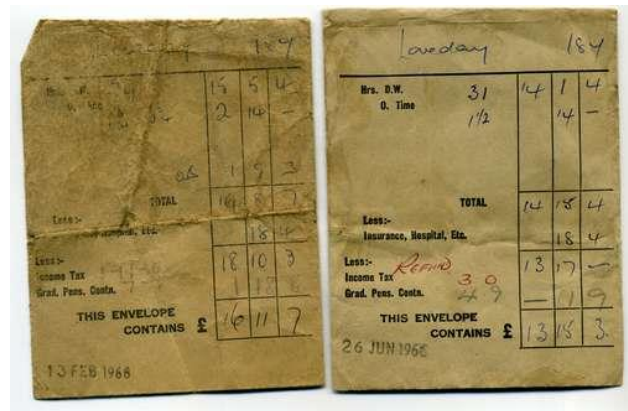 184
15 5 4
2 14 -
1 9 3
TOTAL
Less:-
Hospital, Etc. 18 4
Less:- 18 10 3
Income Tax
Grad. Pens. Contn.
THIS ENVELOPE
CONTAINS £ 16 11 7
13 FEB 1968
Loveday 184
Hrs. D.W. 31 14 1 4
O. Time 1½ 14 -
TOTAL 14 15 4
Less:-
Insurance, Hospital, Etc. 18 4
Less:- REFUND 13 17 -
Income Tax 3 0
Grad. Pens. Contn. 4 9 - 1 9
THIS ENVELOPE
CONTAINS £ 13 15 3
26 JUN 1968